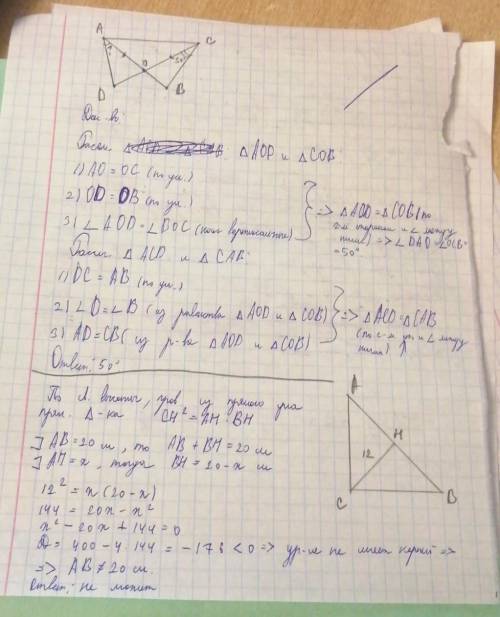 A
C
O
50°
D
B
Док-во:
△AOD и △COB:
1) AO = OC (по усл.)
2) OD = OB (по усл.)
3) ∠AOD = ∠BOC (как вертикальные)
=> △AOD = △COB (по
2-м сторонам и ∠ между
ними) => ∠DAO = ∠OCB =
= 50°
△ACD и △CAB:
1) DC = AB (по усл.)
2) ∠D = ∠B (из равенства △AOD и △COB)
3) AD = CB (из р-ва △AOD и △COB)
=> △ACD = △CAB
и ∠ между
ними)
Ответ: 50°
По из прямого угла
прям. △-ка CH² = AH · BH
] AB = 20 см, то AB + BH = 20 см
] AH = x, тогда BH = 20 - x см
12² = x (20 - x)
144 = 20x - x²
x² - 20x + 144 = 0
D = 400 - 4 · 144 = -176 < 0 => ур-ие не имеет корней =>
=> AB ≠ 20 см.
Ответ: не может
A
H
12
C
B